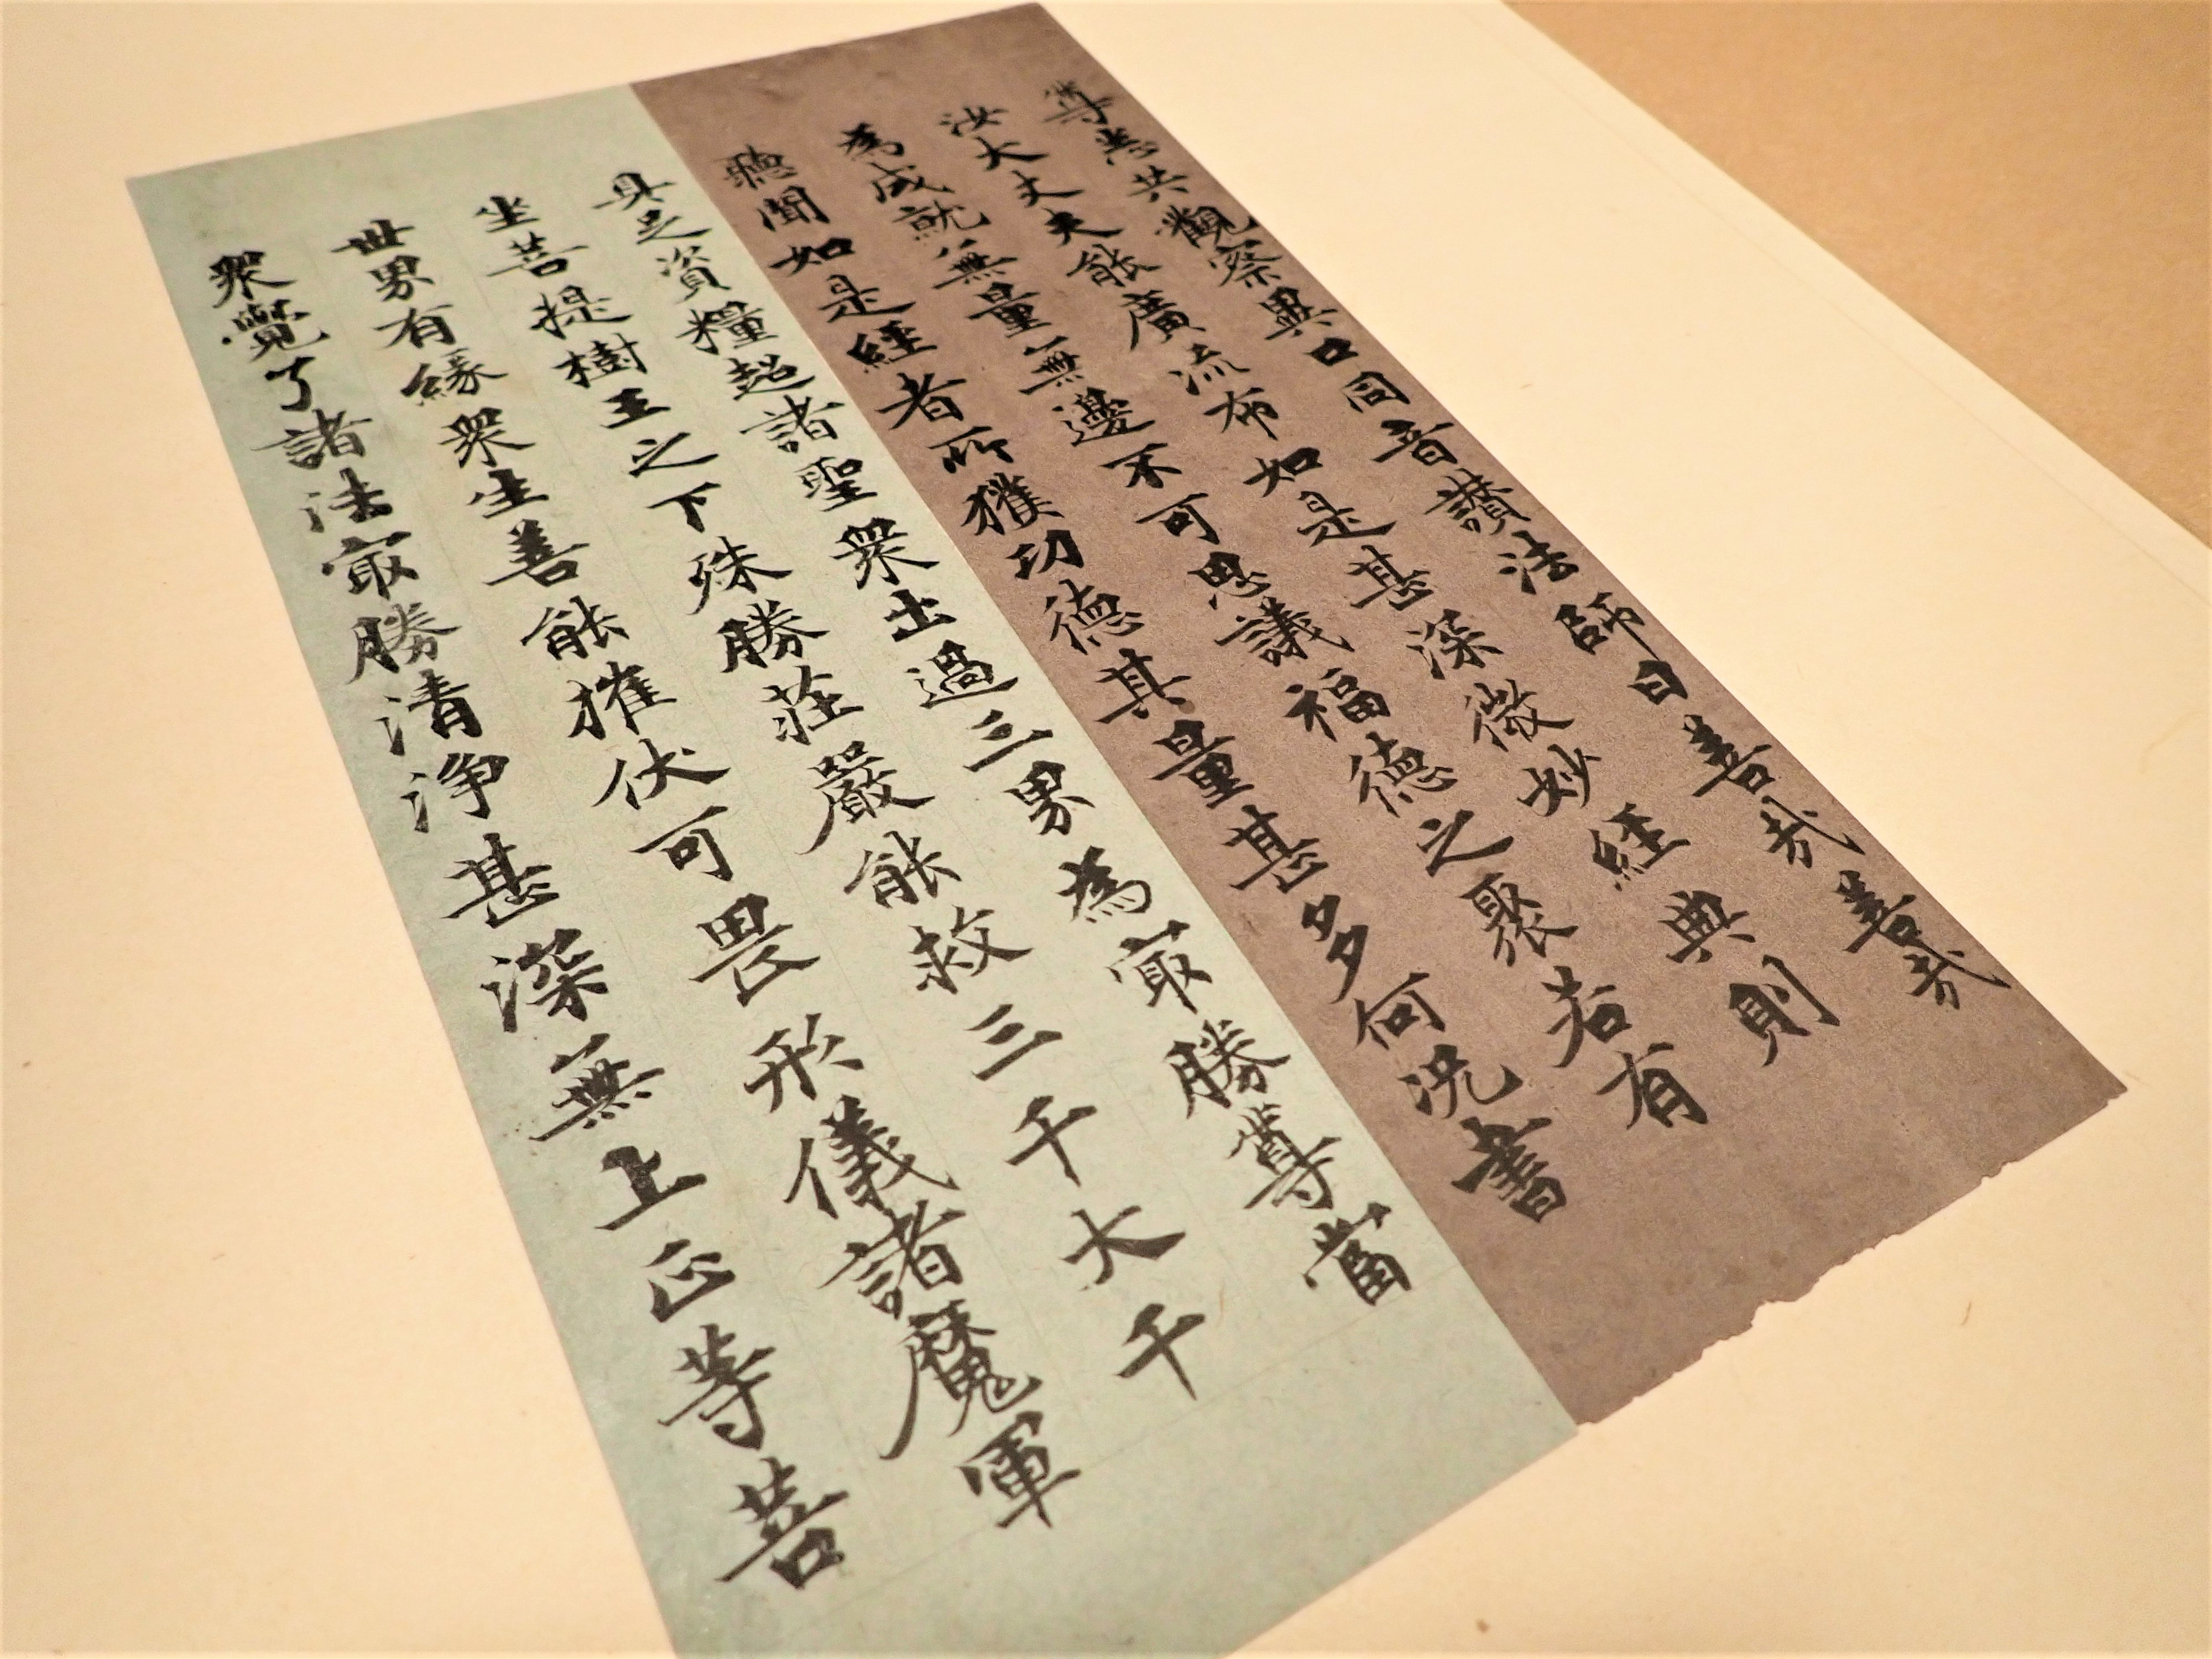 尊悉共觀察異口同音讃法師曰善哉善哉
汝大丈夫能廣流布如是甚深微妙經典則
為成就無量無邊不可思議福德之聚若有
聽聞如是經者所獲功德其量甚多何況書
具足資糧超諸聖衆出過三界為冣勝尊當
坐菩提樹王之下殊勝莊嚴能救三千大千
世界有緣衆生善能摧伏可畏形儀諸魔軍
衆覺了諸法冣勝清淨甚深無上正等菩